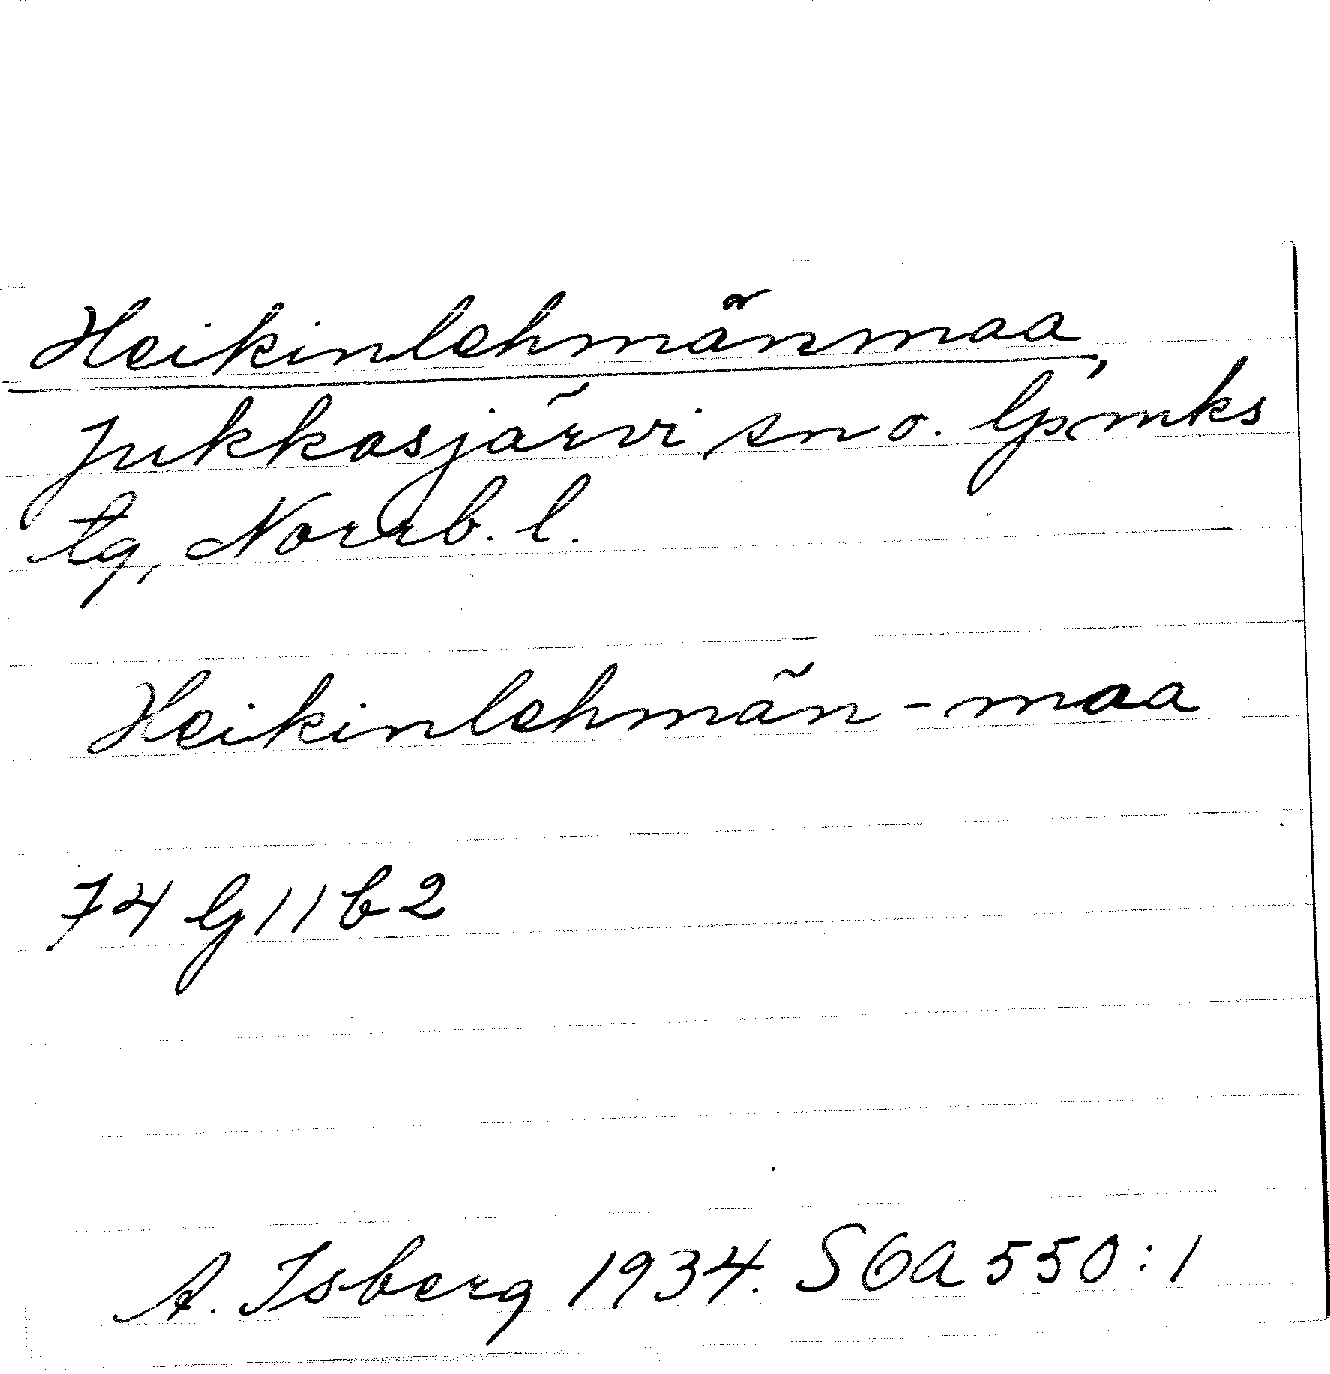 Heikinlehmänmaa,
Jukkasjärvi sn o. lpmks
tg, Norrb. l.
Heikinlehmän-maa
74 G 11 b 2
A. Isberg 1934. SOA 550:1